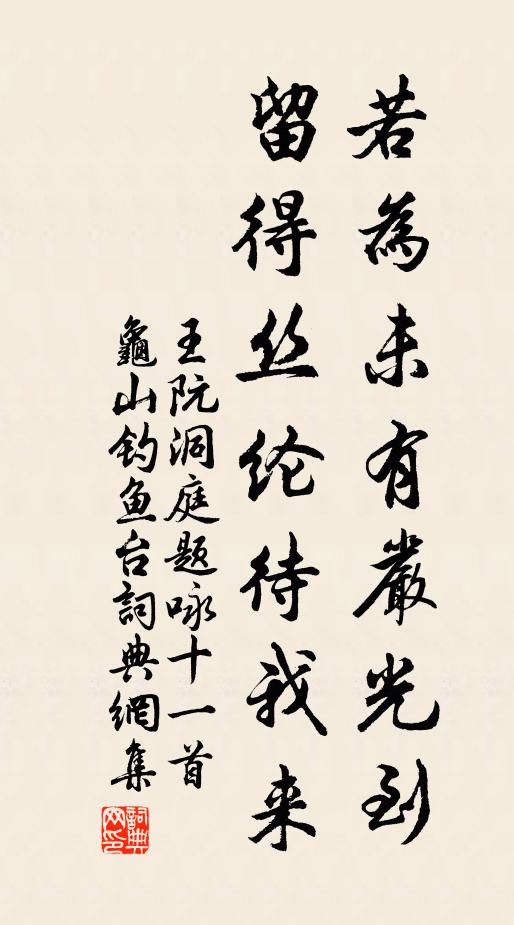 若為未有嚴光到
留得丝纶待我来
王阮洞庭题咏十一首
龜山钓鱼台詞典網集
詞典网印